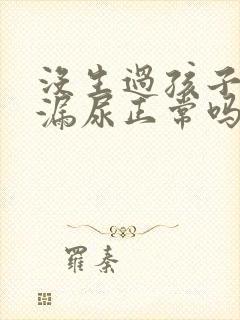 没生过孩子
漏尿正常吗
罗秦